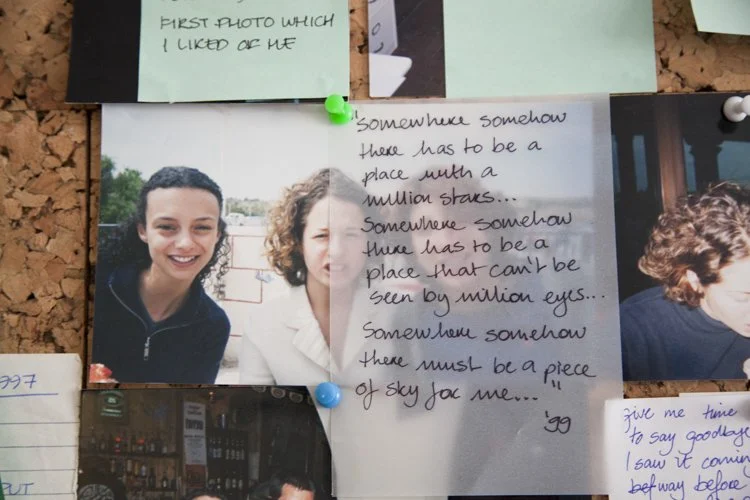 FIRST PHOTO WHICH
I LIKED OF ME
"Somewhere somehow
there has to be a
place with a
million stars...
Somewhere somehow
there has to be a
place that can't be
seen by million eyes...
Somewhere somehow
there must be a piece
of sky for me..."
'99
997
PUT
give me time
to say goodbye
I saw it comin
way before